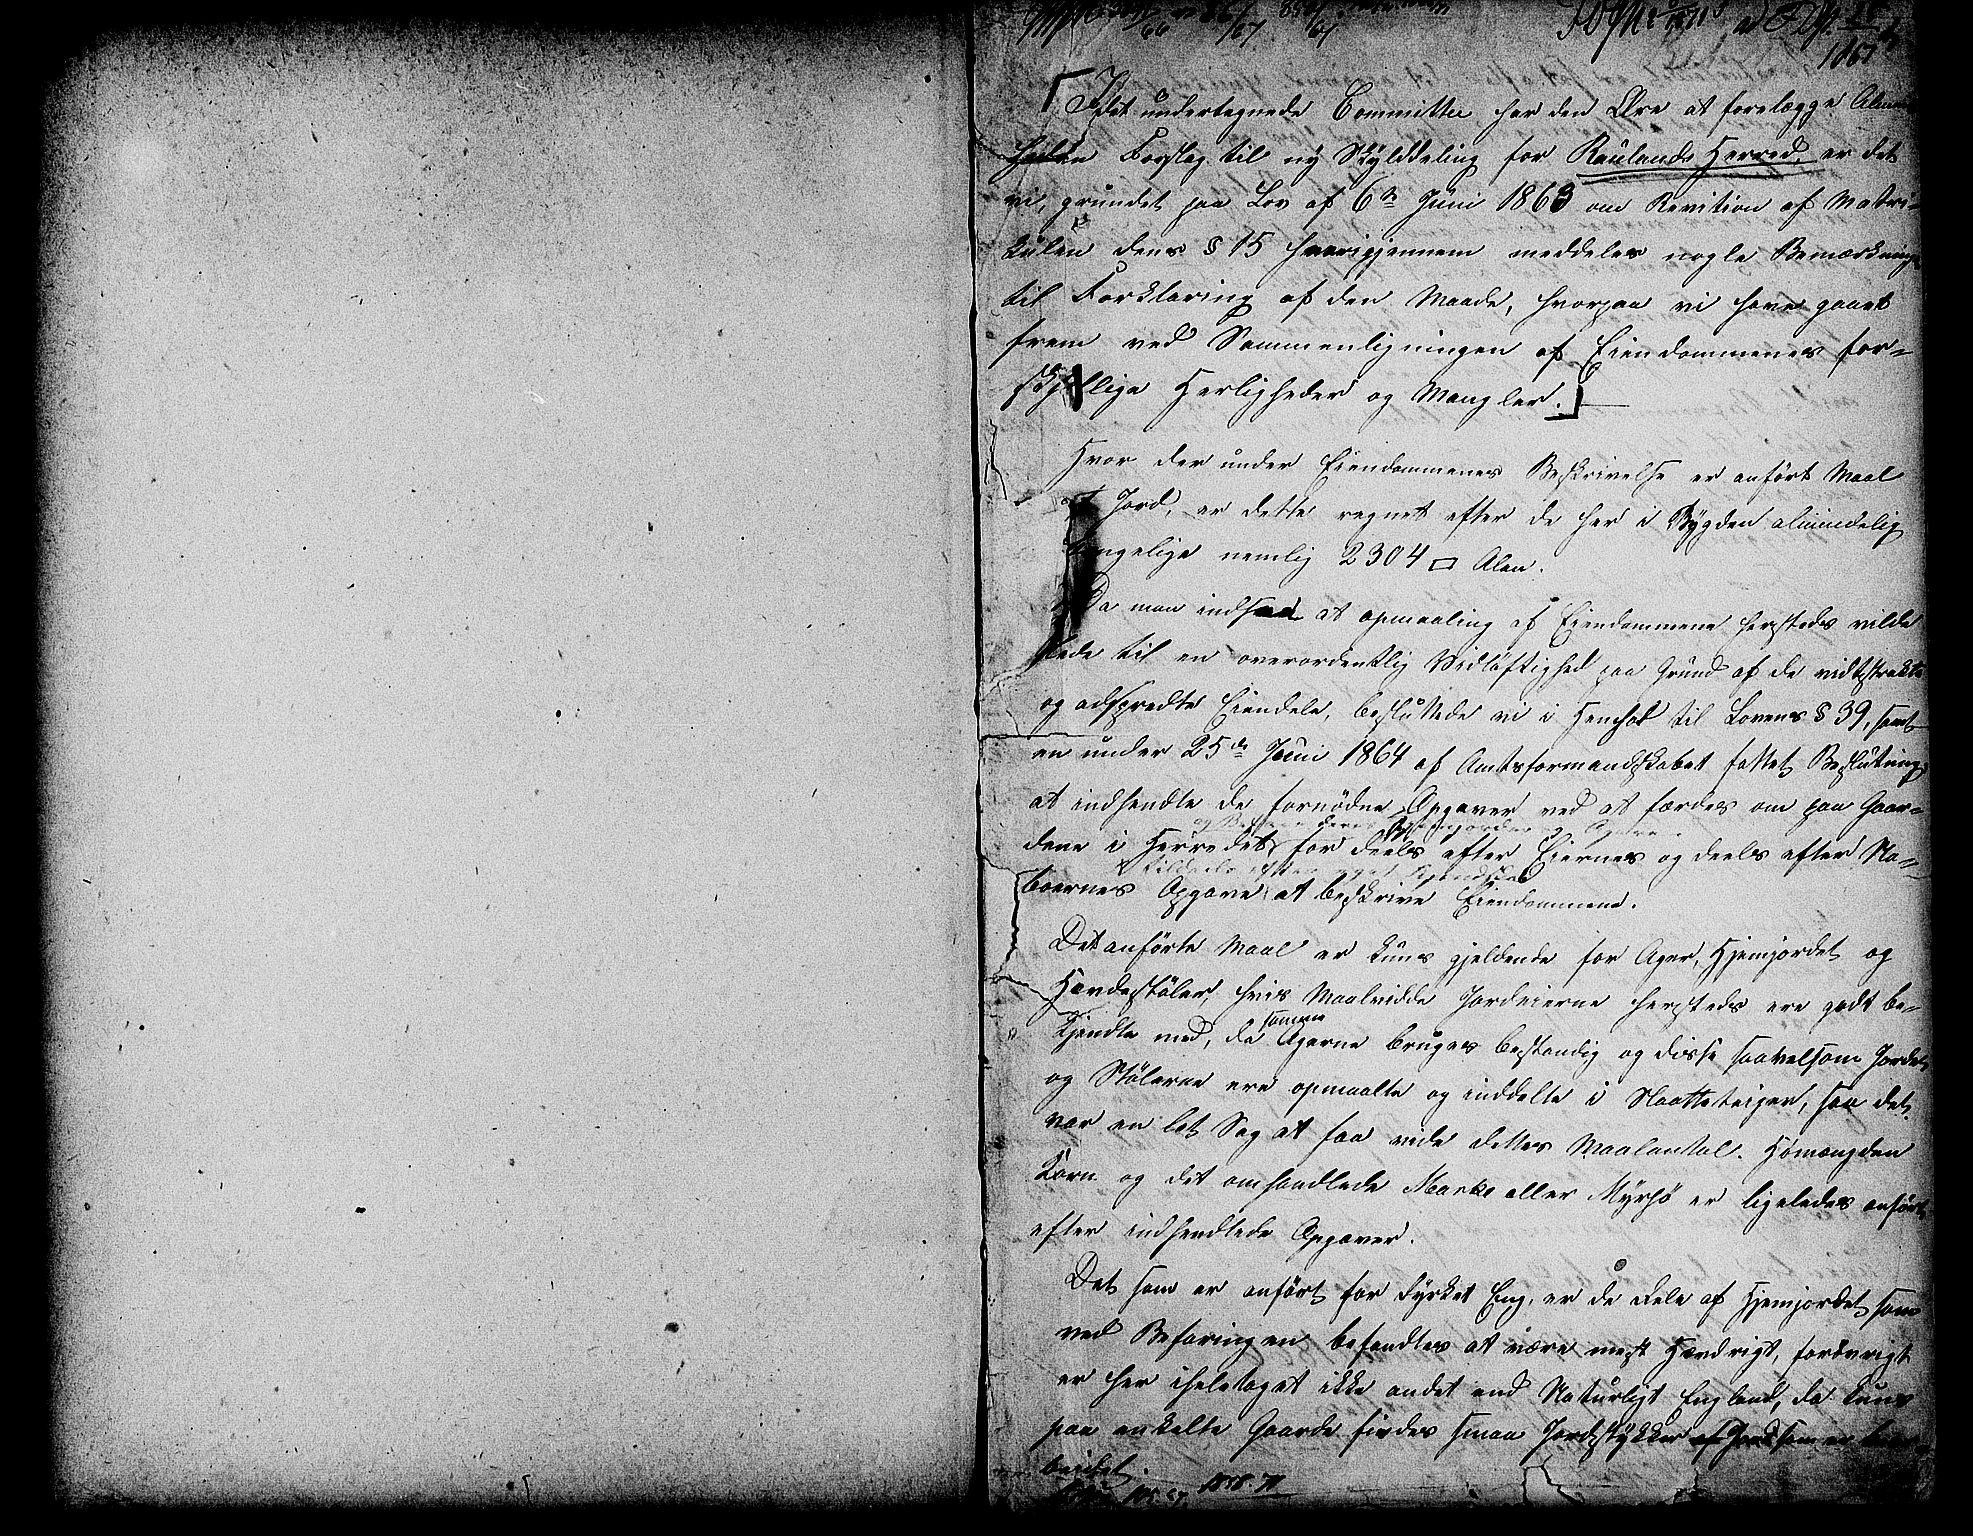 Idet undertegnede Committee har den Ære at forelægge Almin-
heden Forslag til ny Skylddeling for Raulands Herred, er det
vi, grundet paa Lov af 6te Juni 1863 om Revition af Matri-
kulen dens § 15 hvorigjennem meddeles nogle Bemærkninger
til Forklaring af den Maade, hvorpaa vi have gaaet
frem ved Sammenligningen af Eiendommenes for-
skjellige Herligheder og Mangler.
Hvor der under Eiendommenes Beskrivelse er anført Maal
Jord, er dette regnet efter de her i Bygden almindelig
gjengelige nemlig 2304 □ Alen.
Da man indsaa at opmaaling af Eiendommene herstedes vilde
lede til en overordentlig Vidløftighed paa Grund af de vidtstrakte
og adspredte Eiendele, besluttede vi i Henhold til Lovens § 39, samt
en under 25de Juni 1864 af Amtsformandskabet fattet Beslutning,
at indhendte de fornødne Opgaver ved at færdes om paa Gaar-
dene i Herredet for deels efter Eiernes og deels efter Na-
boernes Opgave at beskrive Eiendommene.
Det anførte Maal er kuns gjeldende for Ager, Hjemjordet og
Hævdestøler, hvis Maalvidde Jordeierne herstedes ere godt be-
kjendte med, da samme Agerne bruges bestandig og disse saavelsom Jordet
og Stølerne ere opmaalte og inddelte i Slaatteteiger, saa det
var en let Sag at faa vide dettes Maalantal. Hømængden
Korn og det omhandlede Marke eller Myrhø er ligeledes anført
efter indhendtede Opgaver.
Det som er anført for dyrket Eng, er de Dele af Hjemjordet som
ved Befaringen befandtes at være mest Hævdrigt, forøvrigt
er her iheletaget ikke andet end Naturligt England, da kuns
paa enkelte Gaarde findes smaa Jordstykker af Jord som er bear-
beidet.